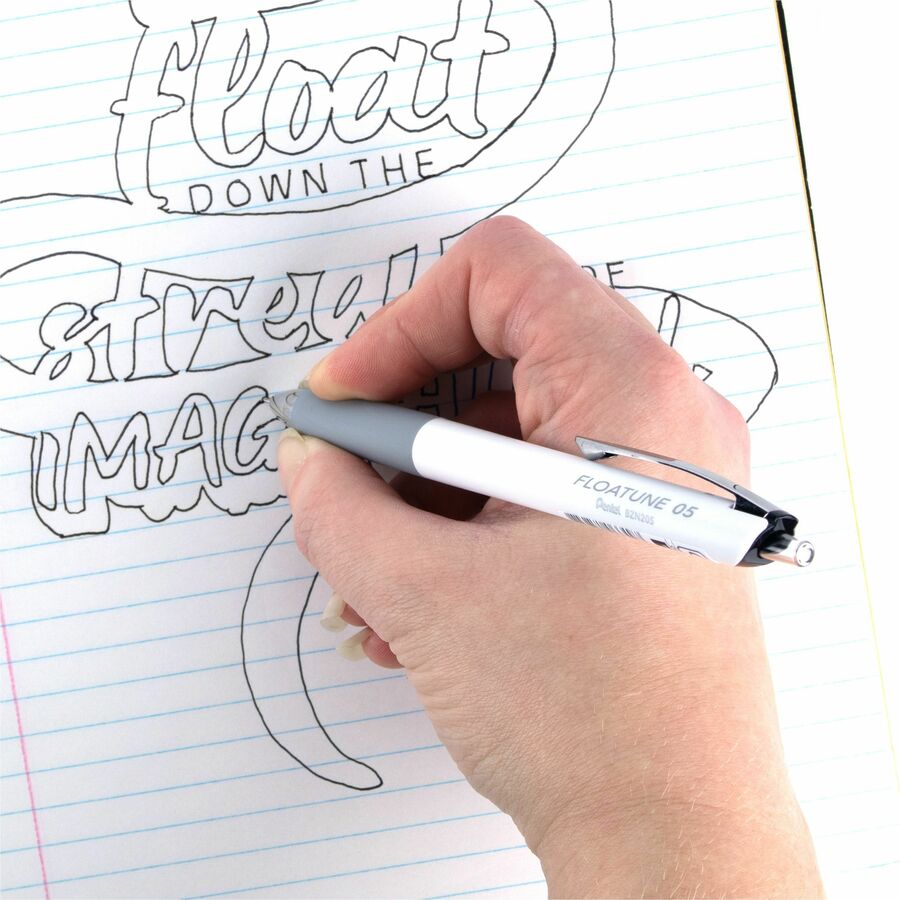 float
DOWN THE
strea
IMAG
FLOATUNE 05
Pentel BZN205